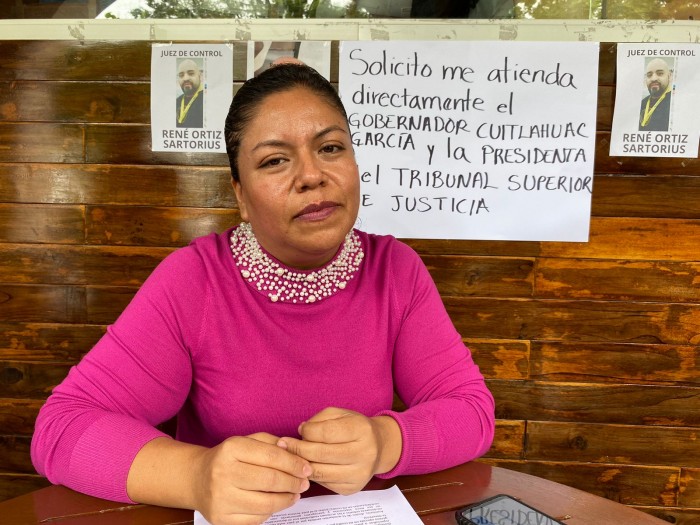 JUEZ DE CONTROL
RENÉ ORTIZ
SARTORIUS
Solicito me atienda
directamente el
GOBERNADOR CUITLAHUAC
GARCÍA y la PRESIDENTA
el TRIBUNAL SUPERIOR
E JUSTICIA
JUEZ DE CONTROL
RENÉ ORTIZ
SARTORIUS
PRESIDEN